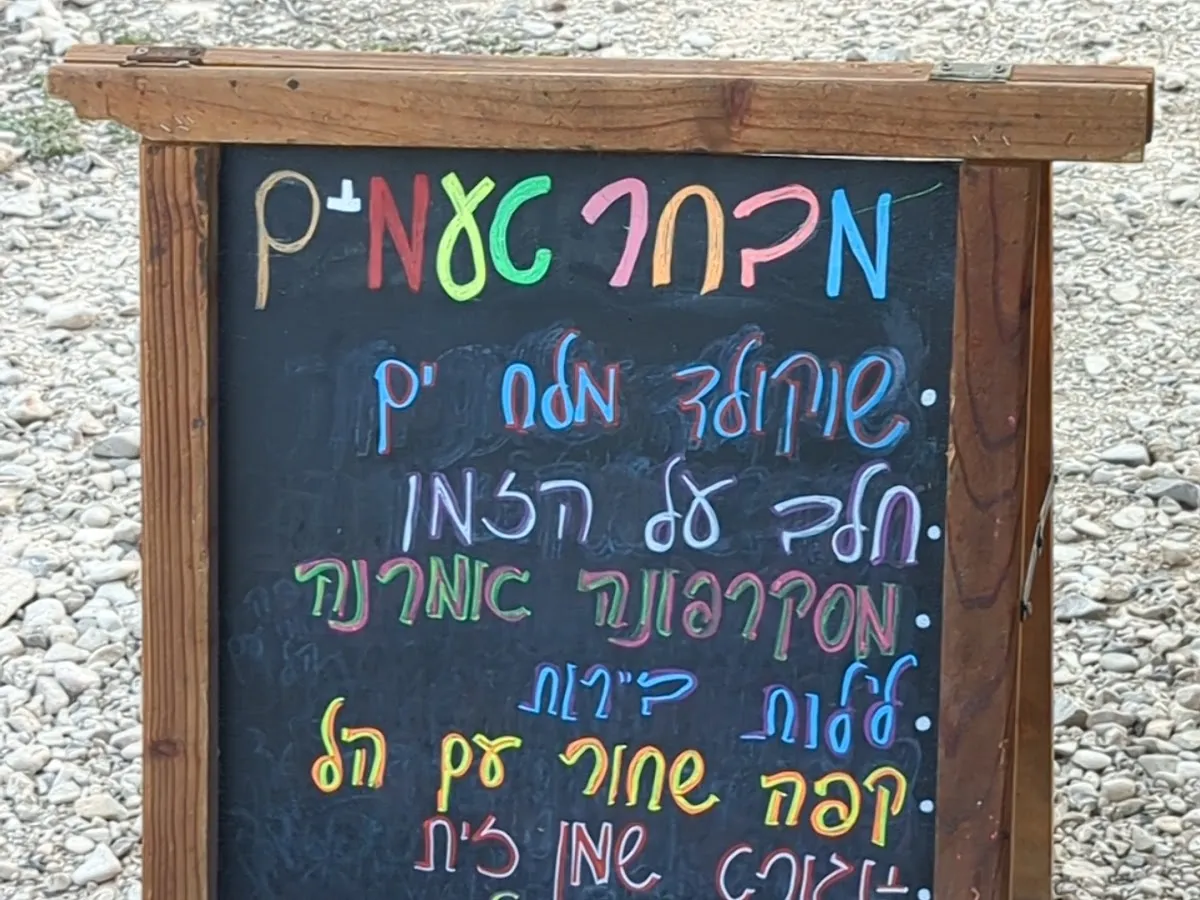 מבחר טעמים
שוקולד מלח ים
חלב על הזמן
מסקרפונה אמרנה
לילות ביירות
קפה שחור עם הל
יוגורט שמן זית